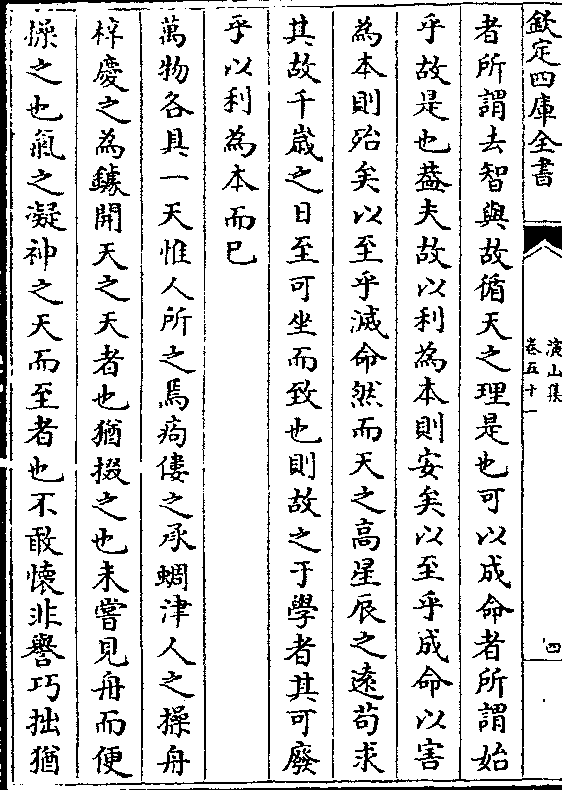 欽定四庫全書
演山集
卷五十一
四
者所謂去智與故循天之理是也可以成命者所謂始
乎故是也葢夫故以利為本則安矣以至乎成命以害
為本則殆矣以至乎滅命然而天之高星辰之逺茍求
其故千嵗之日至可坐而致也則故之于學者其可廢
乎以利為本而已
萬物各具一天惟人所之焉痀僂之承蜩津人之操舟
梓慶之為鐻開天之天者也猶掇之也未嘗見舟而便
操之也氣之凝神之天而至者也不敢懷非譽巧拙猶